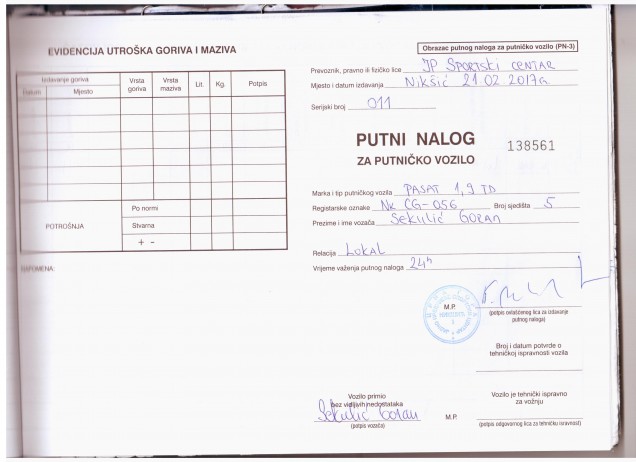 EVIDENCIJA UTROŠKA GORIVA I MAZIVA
Izdavanje goriva
Datum Mjesto Vrsta goriva Vrsta maziva Lit. Kg. Potpis
POTROŠNJA
Po normi
Stvarna
+ -
Obrazac putnog naloga za putničko vozilo (PN-3)
Prevoznik, pravno ili fizičko lice JP SPORTSKI CENTAR
Mjesto i datum izdavanja Nikšić 21 02 2017g
Serijski broj 011
PUTNI NALOG
ZA PUTNIČKO VOZILO
138561
Marka i tip putničkog vozila PASAT 1,9 TD
Registarske oznake NK CG-056 Broj sjedišta 5
Prezime i ime vozača Sekulić Goran
Relacija LOKAL
Vrijeme važenja putnog naloga 24h
M.P.
(potpis ovlašćenog lica za izdavanje
putnog naloga)
Broj i datum potvrde o
tehničkoj ispravnosti vozila
Vozilo primio
bez vidljivih nedostataka
Sekulić Goran
(potpis vozača)
Vozilo je tehnički ispravno
za vožnju
M.P.
(potpis odgovornog lica za tehničku ispravnost)